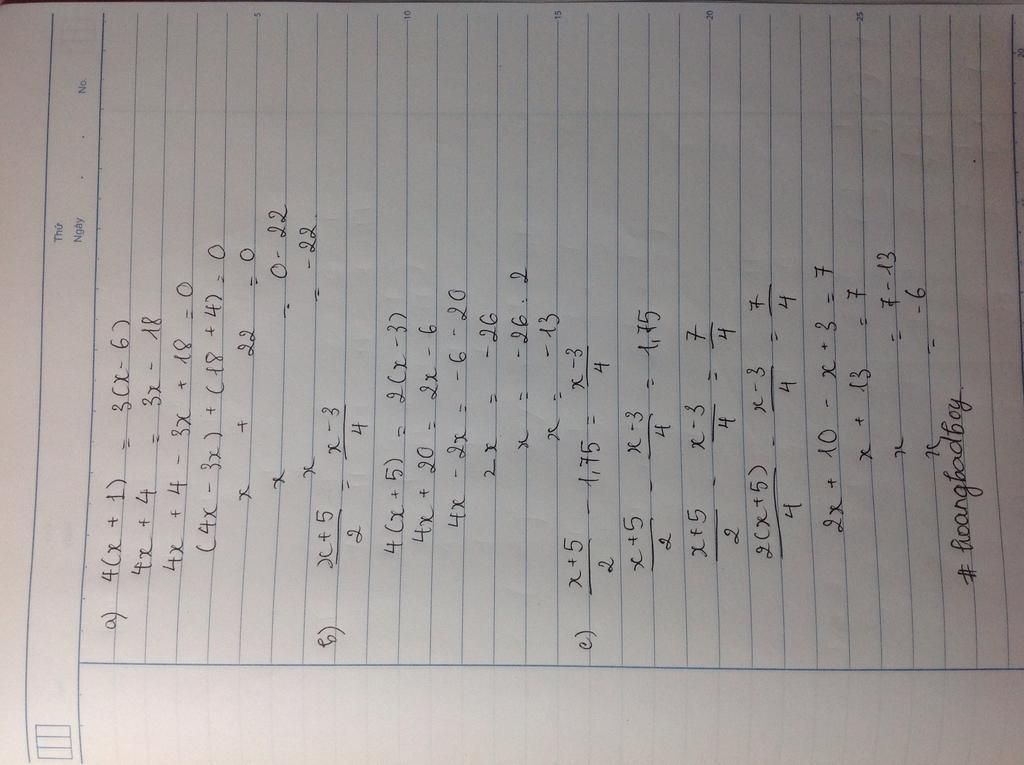 Thứ
Ngày . . No.
a) 4(x + 1) = 3(x - 6)
4x + 4 = 3x - 18
4x + 4 - 3x + 18 = 0
(4x - 3x) + (18 + 4) = 0
x + 22 = 0
x = 0 - 22
x = -22
b) (x + 5)/2 = (x - 3)/4
4(x + 5) = 2(x - 3)
4x + 20 = 2x - 6
4x - 2x = -6 - 20
2x = -26
x = -26 : 2
x = -13
c) (x + 5)/2 - 1,75 = (x - 3)/4
(x + 5)/2 - (x - 3)/4 = 1,75
(x + 5)/2 - (x - 3)/4 = 7/4
2(x + 5)/4 - (x - 3)/4 = 7/4
2x + 10 - x + 3 = 7
x + 13 = 7
x = 7 - 13
x = -6
# hoangbadboy.
5
10
15
20
25
30